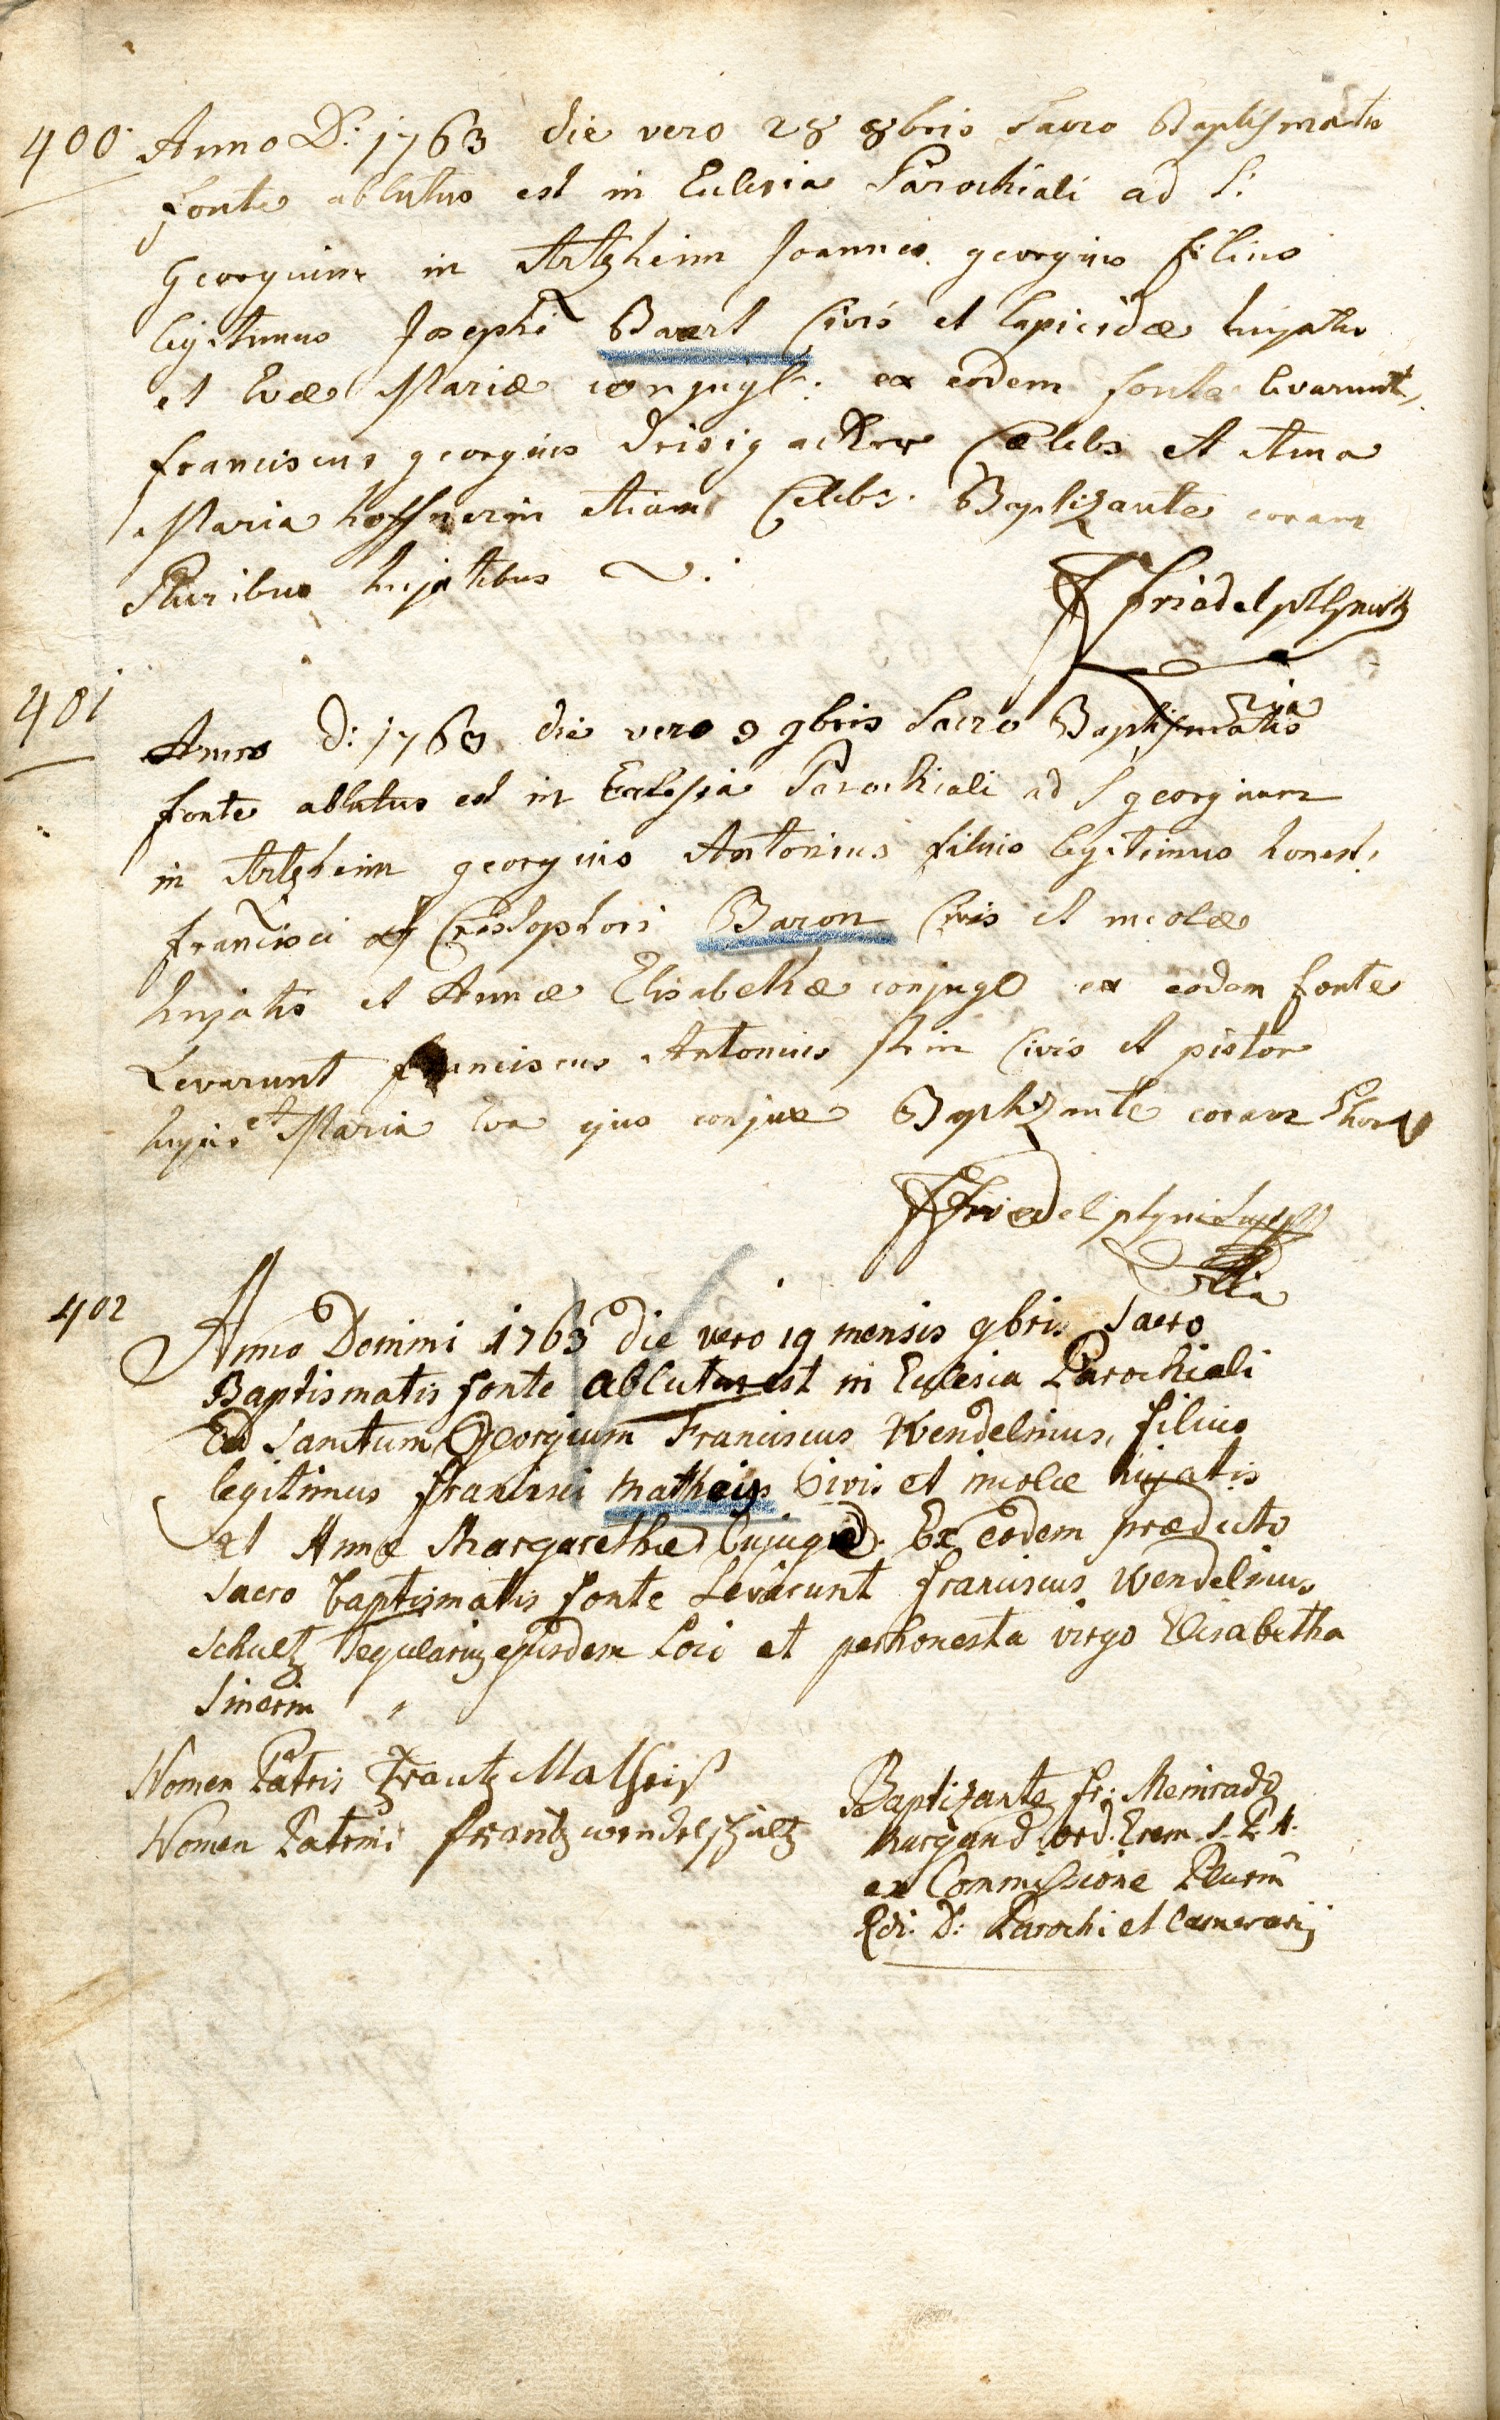 400. Anno D: 1763 die vero 28 8bris Sacro Baptismatis
fonte ablutus est in Eclesia Parochiali ad S:
Georgium in Artzheim Joannes georgius filius
legitimus Josephi Baert Civis et lapicidæ hujatis
et Evæ Mariæ conjugū: ex eodem fonte levarunt,
franciscus georgius drisigacker Cælebs et Anna
Maria hoffnerin etiam Celebs. Baptizante coram
Pluribus hujatibus
F Friedel
401 Anno D: 1763 die vero 9 9bris Sacro Baptismatis
fonte ablutus est in Ecclesia Parochiali ad S georgium
in Artzheim georgius Antonius filius legitimus honest:
francisci Christophori Baron Civis et incolæ
hujatis et Annæ Elisabethæ conjugū ex eodem fonte
Levarunt franciscus Antonius Civis et pistor
hujus et Maria Eva ejus conjux Baptizante coram
F Friedel
402 Anno Domini 1763 die vero 19 mensis 9bris Sacro
Baptismatis fonte ablutus est in Eclesia Parochiali
Ad Sanctum Georgium Franciscus Wendelinus, filius
legitimus francisci Matheis Civis et incolæ hujatis
et Annæ Margarethæ Cujugū. Ex eodem prædicto
Sacro baptismatis fonte Levarunt franciscus Wendelinus
Schultz Tegularius ejusdem Loci et perhonesta virgo Elisabetha
Sinerin
Nomen Patris Frantz Matheiß
Nomen Patrini frantz wendel schultz
Baptizante fr: Meinrado
Burgand ord. Erem. S. P. A.
ex Commissione Plurm̄
Rdi. D: Parochi et Camerarij